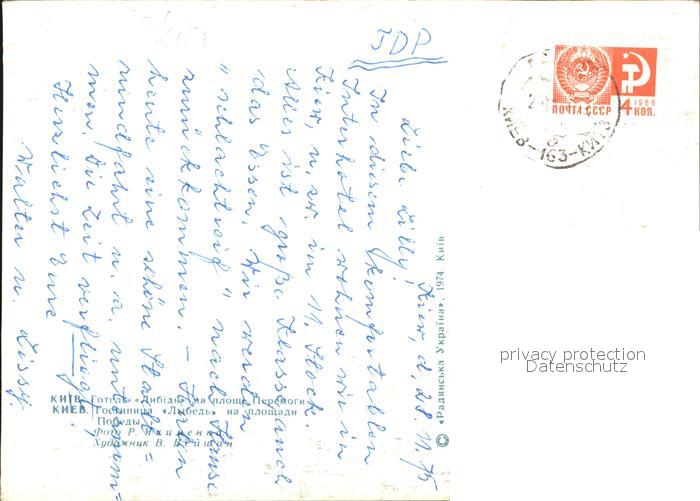 JDP
Kiew, d. 28. 11. 75
Liebe Lilly!
In diesem komfortablen
Interhotel wohnen wir in
Kiew, u. zw. im 11. Stock.
Alles ist große Klasse, auch
das Essen. Wir werden
"schlachtreif" nach Hause
zurückkommen. – Hatten
heute eine schöne Stadt=
rundfahrt u. a. unternom=
men. Die Zeit verfliegt!
Herzlichst Eure
Walter u. Lissy.
КИЇВ. Готель «Либідь» на площі Перемоги
КИЕВ. Гостиница «Лыбедь» на площади
Победы
Фото Р. Якименка
Художник В.
© «Радянська Україна», 1974. Київ
ПОЧТА СССР
1966
4 КОП.
КИЕВ–163–КИЇВ
privacy protection
Datenschutz